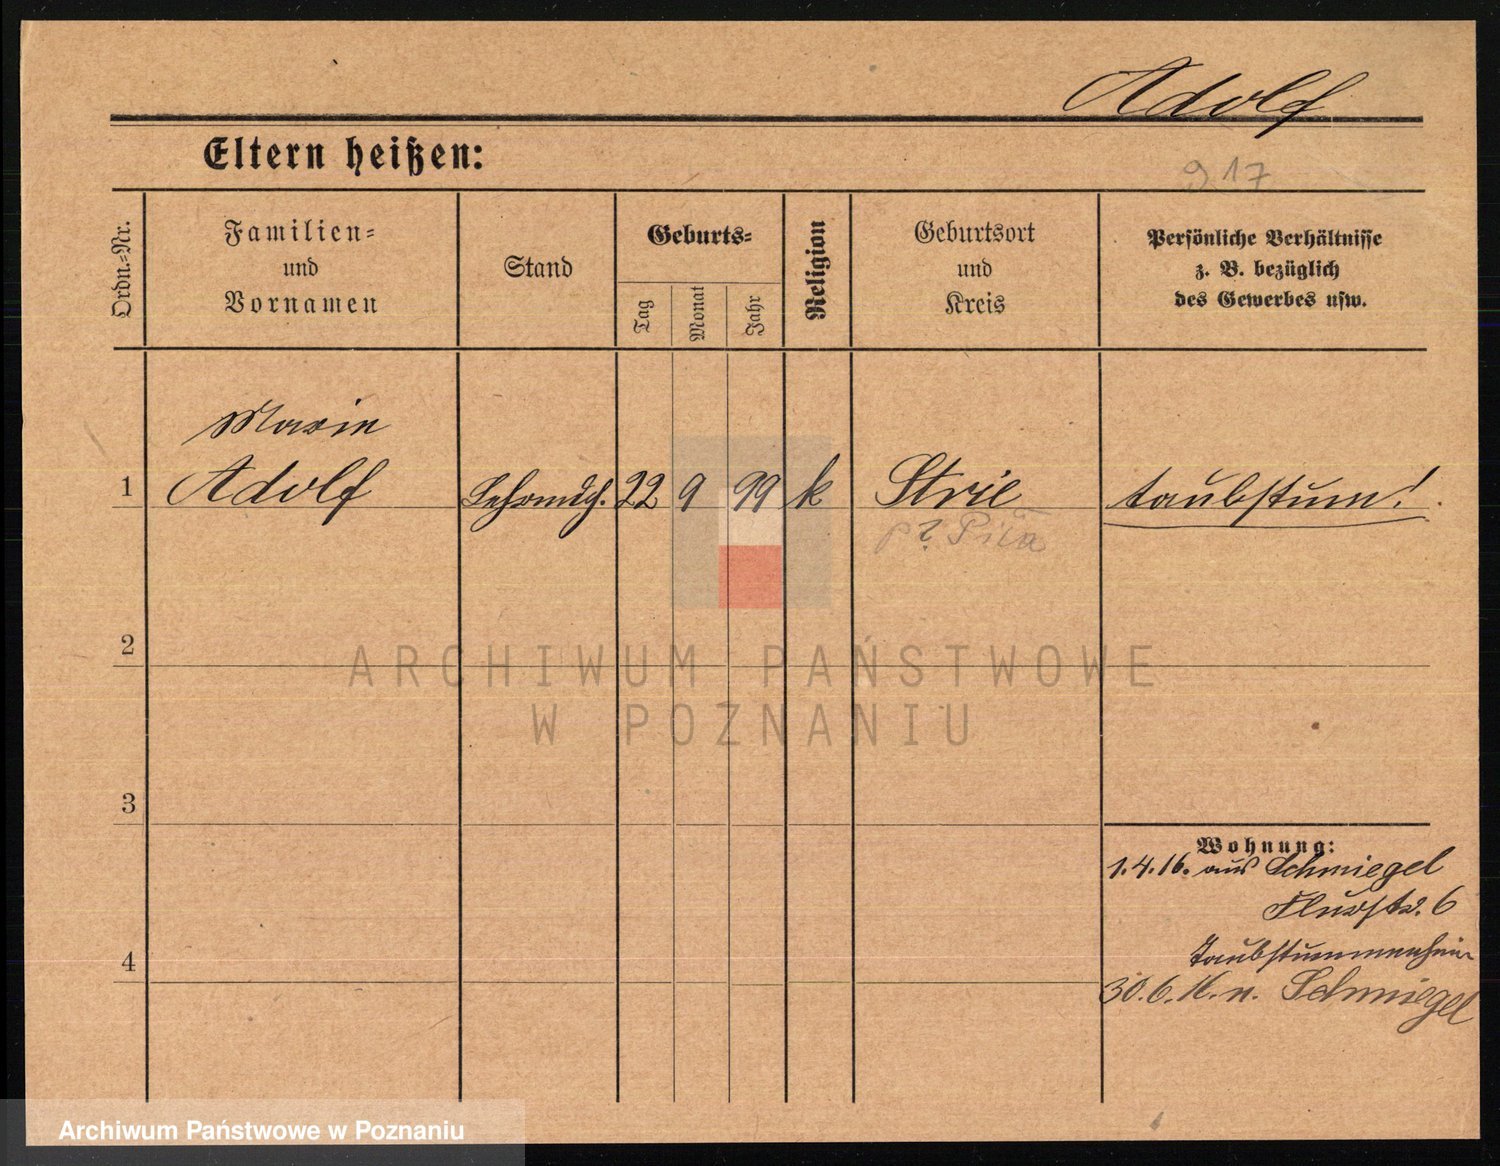 Adolf
Eltern heißen:
917
Ordn.-Nr.
Familien-
und
Vornamen
Stand
Geburts-
Tag
Monat
Jahr
Religion
Geburtsort
und
Kreis
Persönliche Verhältnisse
z. B. bezüglich
des Gewerbes usw.
Marie
1 Adolf 22 9 99 k Strie taubstum!
2
3
4
Wohnung:
1.4.16. aus Schmiegel
Flurstr. 6
30.6.16. n. Schmiegel
ARCHIWUM PAŃSTWOWE
W POZNANIU
Archiwum Państwowe w Poznaniu